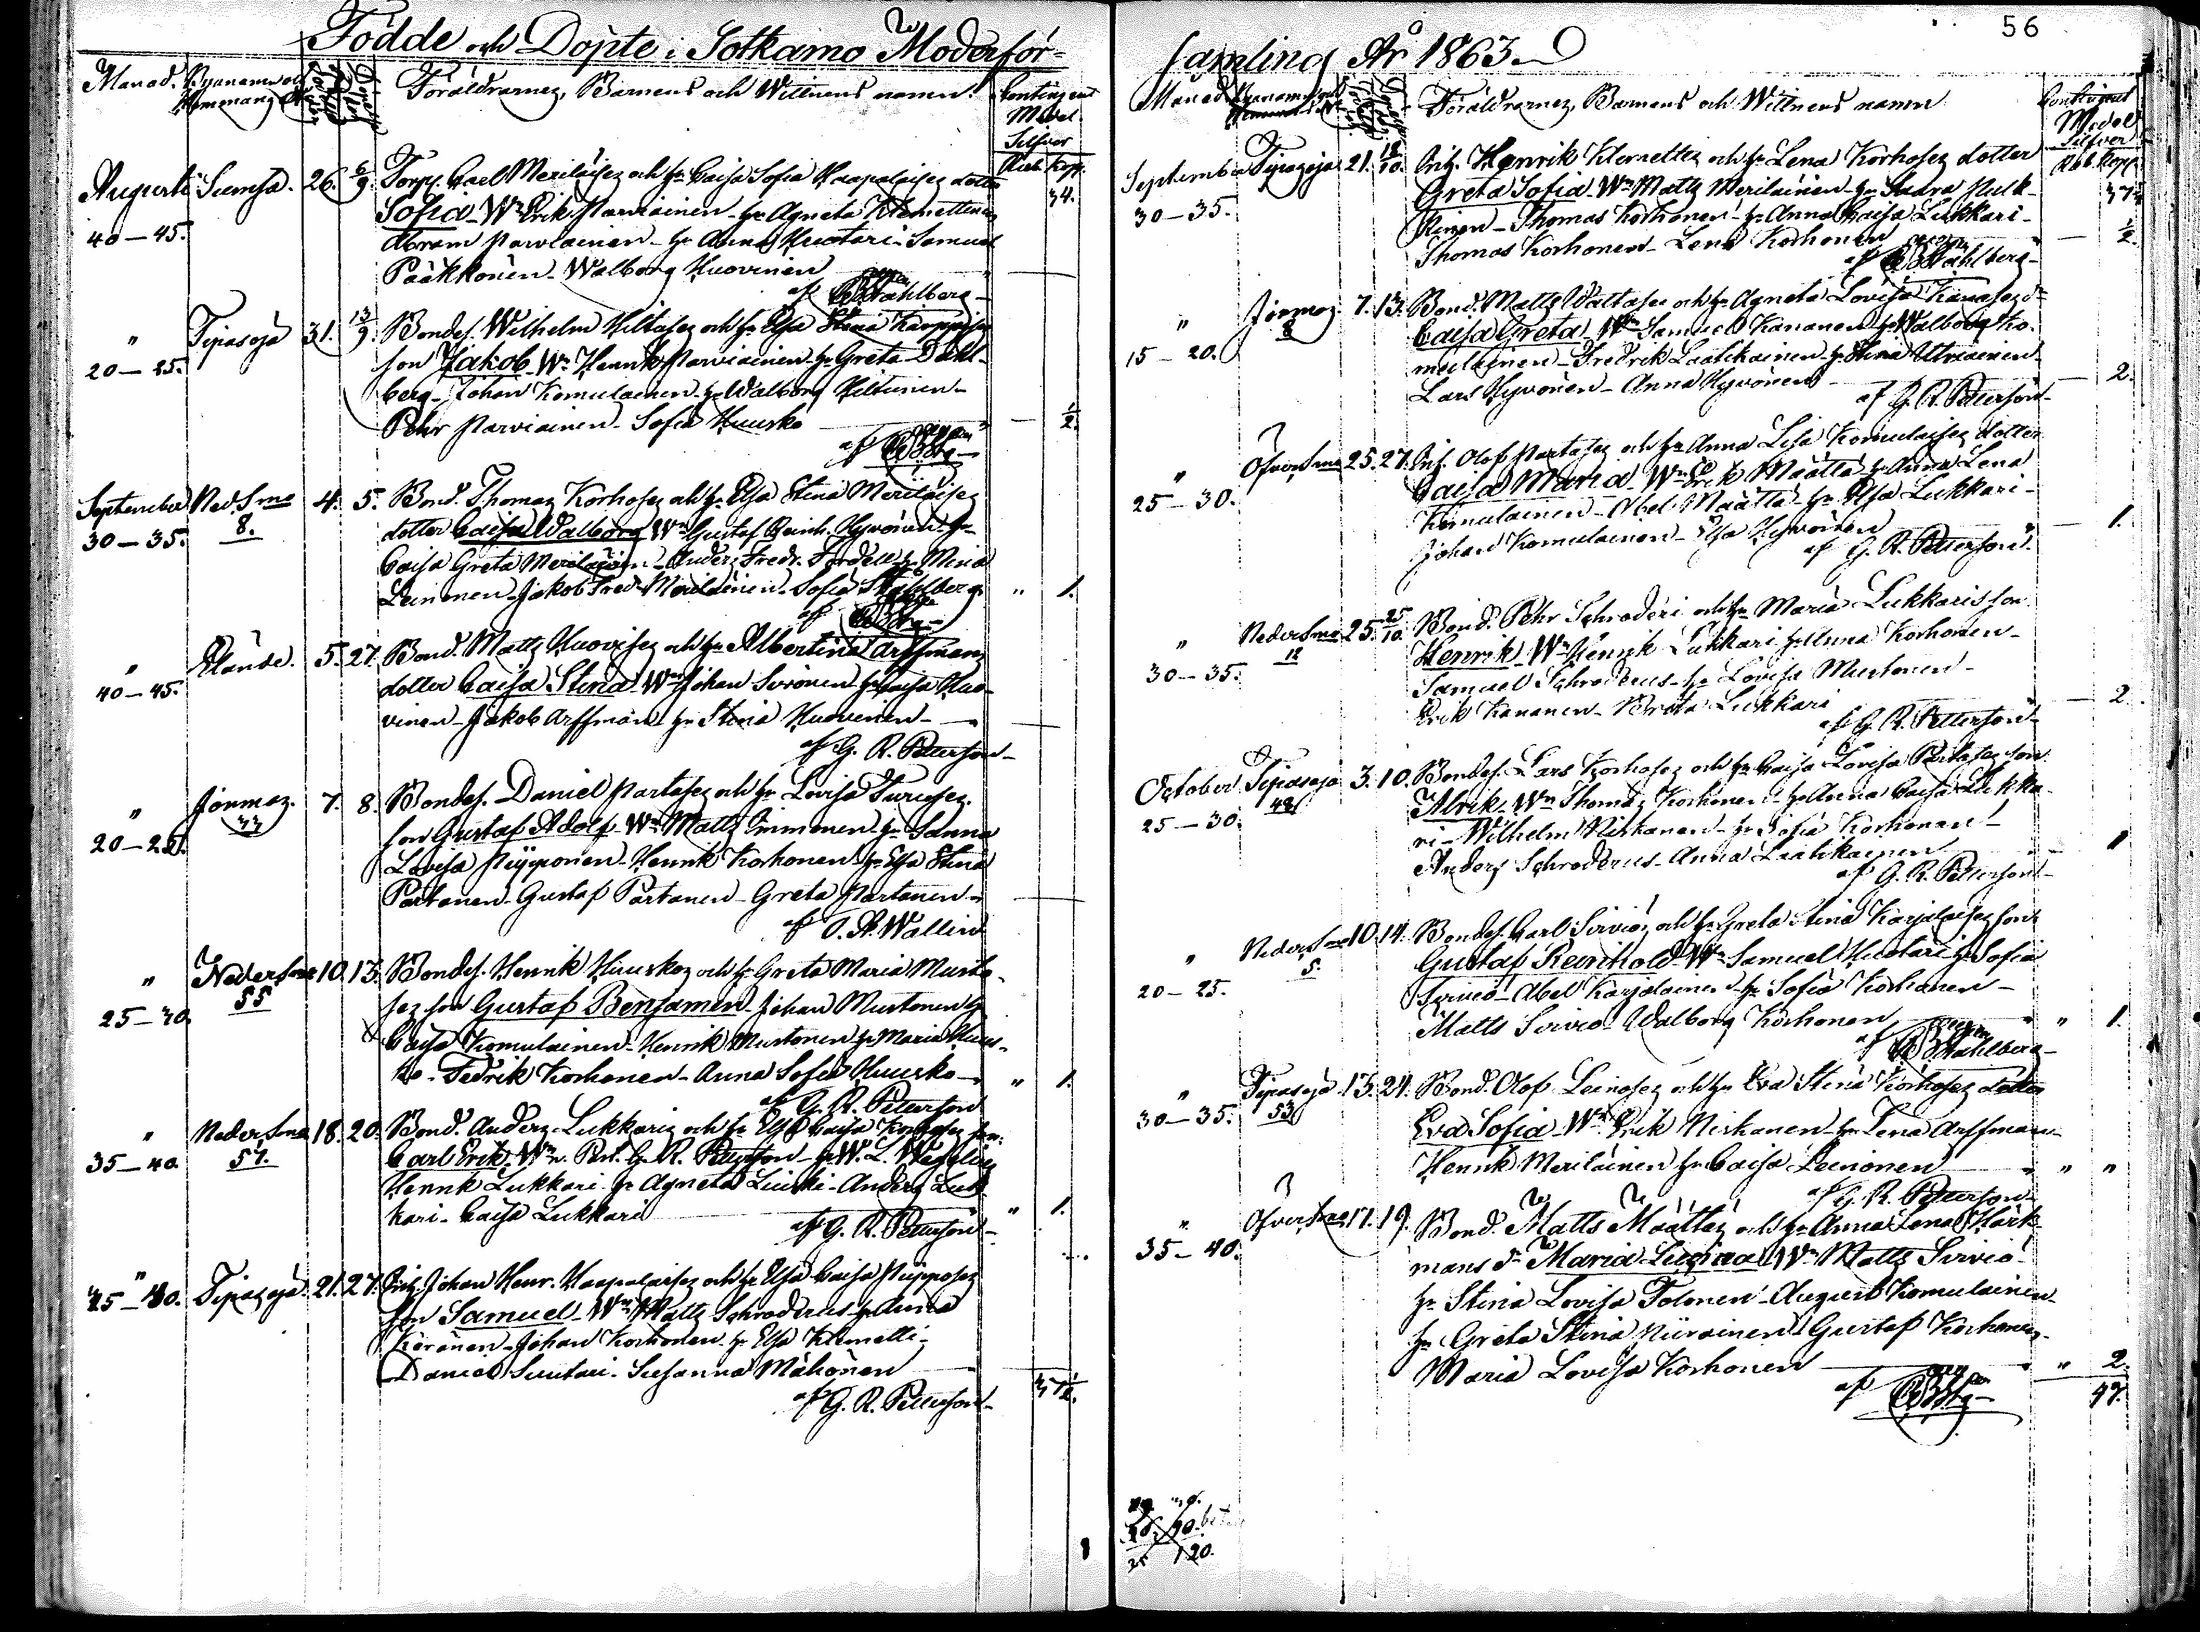 Födde och Döpte i Sotkamo Moderför-
Månad. Bynamn och
Hemmans No
Föräldrarnes, Barnens och Wittnens namn.
Contingent
Medel
Silfver
Rub. Kop.
34.
Augusti Sumsa. 26. 6/9. Torp. Carl Meriläises och h. Caisa Sofia Haapalaises dotter
Sofia - Wn Erik Parviainen - h. Agneta Klemettinen
40 - 45.
Abram Parviainen - h. Anna Huotari - Samuel
Pääkkönen - Walborg Huovinen
af Stahlberg -
" Tipasoja 31. 13/9. Bondes. Wilhelm Hiltuses och h. Elsa Stina Karppises
20 - 25.
son Jakob - Wn Henrik Parviainen - h. Greta Dahl-
berg - Johan Komulainen - h. Walborg Hiltunen -
Pehr Parviainen - Sofia Huusko 1/2.
af
September Ned. Sma 4. 5. Bond. Thomas Korhoses och h. Elsa Stina Meriläises
30 - 35. 8.
dotter Caisa Walborg Wn Gustaf Reinh. Hyvönen - h.
Caisa Greta Meriläinen - Anders Fredr. h. Mina
Leinonen - Jakob Fred. Meriläinen - Sofia Stahlberg " 1.
af
" 5. 27. Bond. Matts Huovises och h. Albertina Arffmans
40 - 45.
dotter Caisa Stina Wn Johan Sirönen - h. Caisa Huo-
vinen - Jakob Arffman - h. Stina Huovinen -
af G. R. Petterson -
" Jormas. 7. 8. Bondes. Daniel Partases och h. Lovisa Turuses
33
20 - 25.
son Gustaf Adolf - Wn Matts Immonen - h. Sanna
Lovisa Piipponen - Henrik Korhonen - h. Elsa Stina
Partanen - Gustaf Partanen - Greta Partanen -
af O. A. Wallin
" Neder Sma 10. 13. Bondes. Henrik Huuskos och h. Greta Maria Musto-
55
25 - 30.
ses son Gustaf Benjamin - Johan Mustonen - h.
Caisa Komulainen - Henrik Mustonen - h. Maria Huus-
ko - Fedrik Korhonen - Anna Sofia Huusko - " 1.
af G. R. Petterson
" Neder Sma 18. 20. Bond. Anders Lukkaris och h. Elsa Caisa Korhoses son
35 - 40. 57.
Carl Erik - Wn Past. G. R. Petterson - h. W. L.
Henrik Lukkari - h. Agneta - Anders Luk-
kari - Caisa Lukkari " 1.
af G. R. Petterson -
" Tipasoja. 21. 27. Inh. Johan Henr. Haapalaises och h. Elsa Caisa Piipposes
son Samuel - Wn Matts Schroderus - h. Anna
Keränen - Johan Korhonen - h. Elsa Klemetti -
Daniel Suutari - Susanna Mähönen
af G. R. Petterson -
samling År 1863
56
Månad. Bynamn och
Föräldrarnes, Barnens och Wittnens namn
Contingent
Medel
Silfver
Rub. Kop.
September Tipasoja 21. 18/10. Inh. Henrik Klemettes och h. Lena Korhoses dotter
30 - 35.
Greta Sofia - Wn Matts Meriläinen - h. Saara Pulk-
kinen - Thomas Korhonen - h. Anna Caisa Lukkari -
Thomas Korhonen - Lena Korhonen 1/2.
af Stahlberg -
" Jormas 7. 13. Bond. Matts Wattases och h. Agneta Lovisa Kanases d-
8
15 - 20.
Caisa Greta Wn Samuel Kananen - h. Walborg Ko-
mulainen - Fredrik Laatikainen - h. Stina Utriainen -
Lars Hyvönen - Anna Hyvönen 2.
af G. R. Petterson -
" Öfver Sma 25. 27. Inh. Olof Partases och h. Anna Lisa Komulaises dotter
25 - 30.
Caisa Maria - Wn Erik Määttä - h. Anna Lena
Komulainen - Abel Määttä - h. Elsa Lukkari -
Johan Komulainen - Elsa Hyvönen 1.
af G. R. Petterson -
" Neder Sma 25. 25/10. Bond. Pehr Schroderi och h. Maria Lukkaris son
12
30 - 35.
Henrik - Wn Henrik Lukkari - h. Anna Korhonen -
Samuel Schroderus - h. Lovisa Mustonen -
Erik Kananen - Greta Lukkari 2.
af G. R. Petterson -
October Tipasoja 3. 10. Bondes. Lars Korhoses och h. Caisa Lovisa Partases son
48
25 - 30.
Alrik - Wn Thomas Korhonen - h. Anna Caisa Lukka-
ri - Wilhelm Niskanen - h. Sofia Korhonen -
Anders Schroderus - Anna Laatikainen
af G. R. Petterson -
" Neder Sma 10. 14. Bondes. Carl Sirviös och h. Greta Stina Karjalaises son
5.
20 - 25.
Gustaf Reinhold - Wn Samuel Huotari - h. Sofia
Sirviö - Abel Karjalainen - h. Sofia Korhonen -
Matts Sirviö - Walborg Korhonen " 1.
af Stahlberg -
" Tipasoja 13. 24. Bond. Olof Leinoses och h. Eva Stina Korhoses dotter
53
30 - 35.
Eva Sofia - Wn Erik Niskanen - h. Lena Arffman -
Henrik Meriläinen - h. Caisa Leinonen " "
af G. R. Petterson -
" Öfver Sma 17. 19. Bond. Matts Määttäs och h. Anna Lena Härk-
35 - 40.
mans d- Maria Lusina Wn Matts Sirviö
h. Stina Lovisa Tolonen - August Komulainen -
h. Greta Stina Niiranen - Gustaf Korhonen -
Maria Lovisa Korhonen " 2.
af
47.